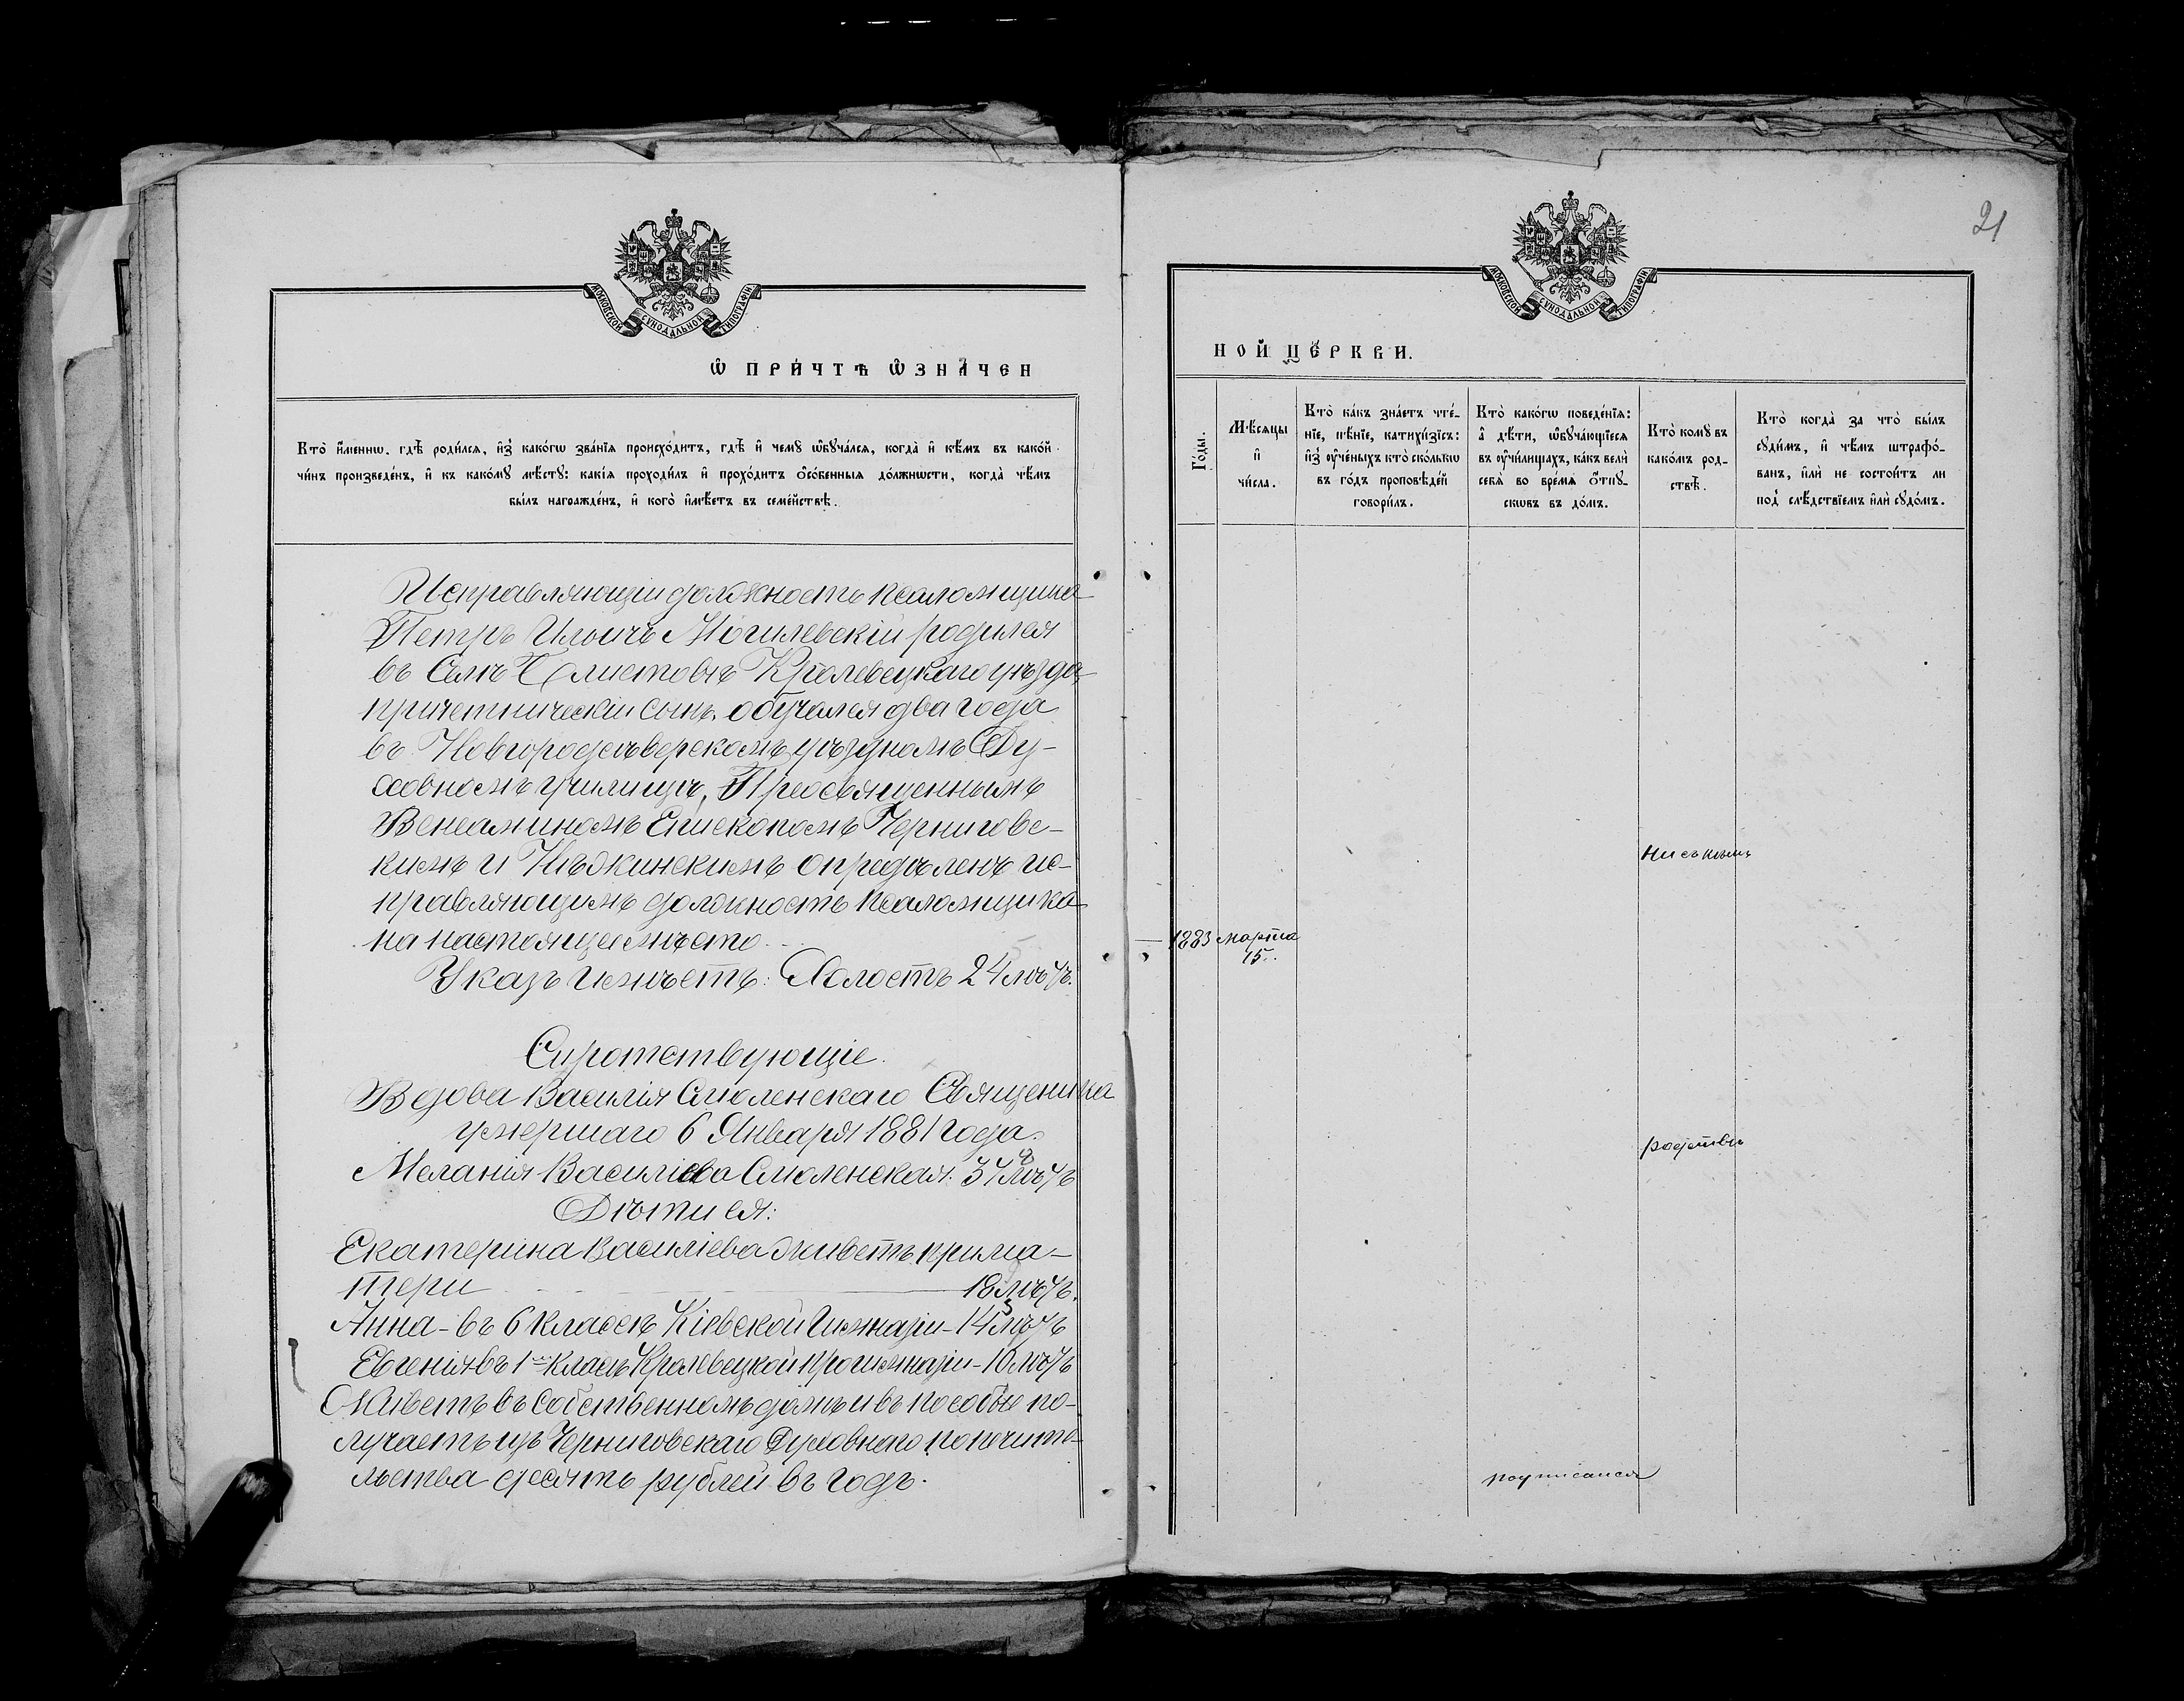 МОСКОВСКОЙ СУНОДАЛЬНОЙ ТИПОГРАФІИ
Ѡ ПРИ́ЧТѢ ѠЗНА́ЧЕН
Кто̀ и҆́менно, гдѣ̀ роди́лсѧ, и҆з̾ како́гѡ зва́нїѧ происхо́дитъ, гдѣ̀ и҆ чемꙋ̀ ѡ҆бꙋча́лсѧ, когда̀ и҆ кѣ́мъ въ како́й
чи́нъ произведе́нъ, и҆ къ како́мꙋ мѣ́стꙋ: какі̑ѧ проходи́лъ и҆ прохо́дитъ ѻ҆со́бенныѧ до́лжнѡсти, когда̀ чѣ́мъ
бы́лъ награжде́нъ, и҆ кого̀ и҆мѣ́етъ въ семе́йствѣ.
Исправляющій должность псаломщика
Петръ Ильичъ Могилевскій родился
въ Селѣ Кролевецкаго уѣзда
причетническій сынъ. обучался два года
въ Новгородсѣверскомъ уѣздномъ Ду-
ховномъ училищѣ, Преосвященнымъ
Веніаминомъ Епископомъ Черниговс-
кимъ и Нѣжинскимъ опредѣленъ ис-
правляющимъ должность псаломщика
на настоящее мѣсто.
Указъ имѣетъ: Холостъ 24 лѣтъ.
Сиротствующіе.
Вдова Василія Смоленскаго Священника
умершаго 6 Января 1881 года.
Меланія Василіева Смоленская: 37 8 лѣтъ
Дѣти ея:
Екатерина Василіева живетъ при ма-
тери 18 лѣтъ.
Анна - въ 6 классѣ Кіевской Гимназіи - 14 5 лѣтъ
Евгенія въ 1м класѣ Кролевецкой прогимназіи - 10 лѣтъ
Живетъ въ собственномъ домѣ и въ пособіе по-
лучаетъ изъ Черниговскаго Духовнаго попечите-
льства десять рублей въ годъ.
21
МОСКОВСКОЙ СУНОДАЛЬНОЙ ТИПОГРАФІИ
НОЙ ЦЕ́РКВИ.
Го́ды.
Мѣ́сѧцы
и҆
чи́сла.
Кто̀ ка́къ зна́етъ чте́-
нїе, пѣ́нїе, катихи́зїсъ:
и҆з̾ ᲂу҆че́ныхъ кто̀ ско́лькѡ
въ го́дъ проповѣ́дей
говори́лъ.
Кто̀ како́гѡ поведе́нїѧ:
а҆ дѣ́ти, ѡ҆бꙋча́ющїесѧ
въ ᲂу҆чи́лищахъ, ка́къ велѝ
себѧ̀ во вре́мѧ ѿпꙋ-
сковъ въ до́мъ.
Кто̀ комꙋ̀ въ
како́мъ род-
ствѣ̀.
Кто̀ когда̀ за что̀ бы́лъ
сꙋди́мъ, и҆ чѣ́мъ штрафо́-
ванъ, и҆лѝ не состои́тъ ли
под̾ слѣ́дствїемъ и҆лѝ сꙋдо́мъ.
ни съ кѣмъ
1883 марта
15.
родствѣ
подписался